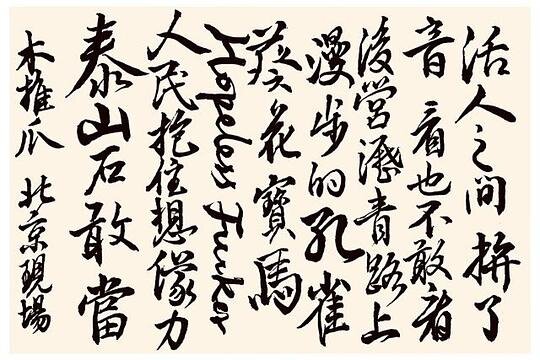 活人之間拚了
音 看也不敢看
後營瀝青路上
漫步的孔雀
葵花寶馬
Hopeless Fucker
人民抱住想像力
泰山石敢當
木推瓜 北京現場